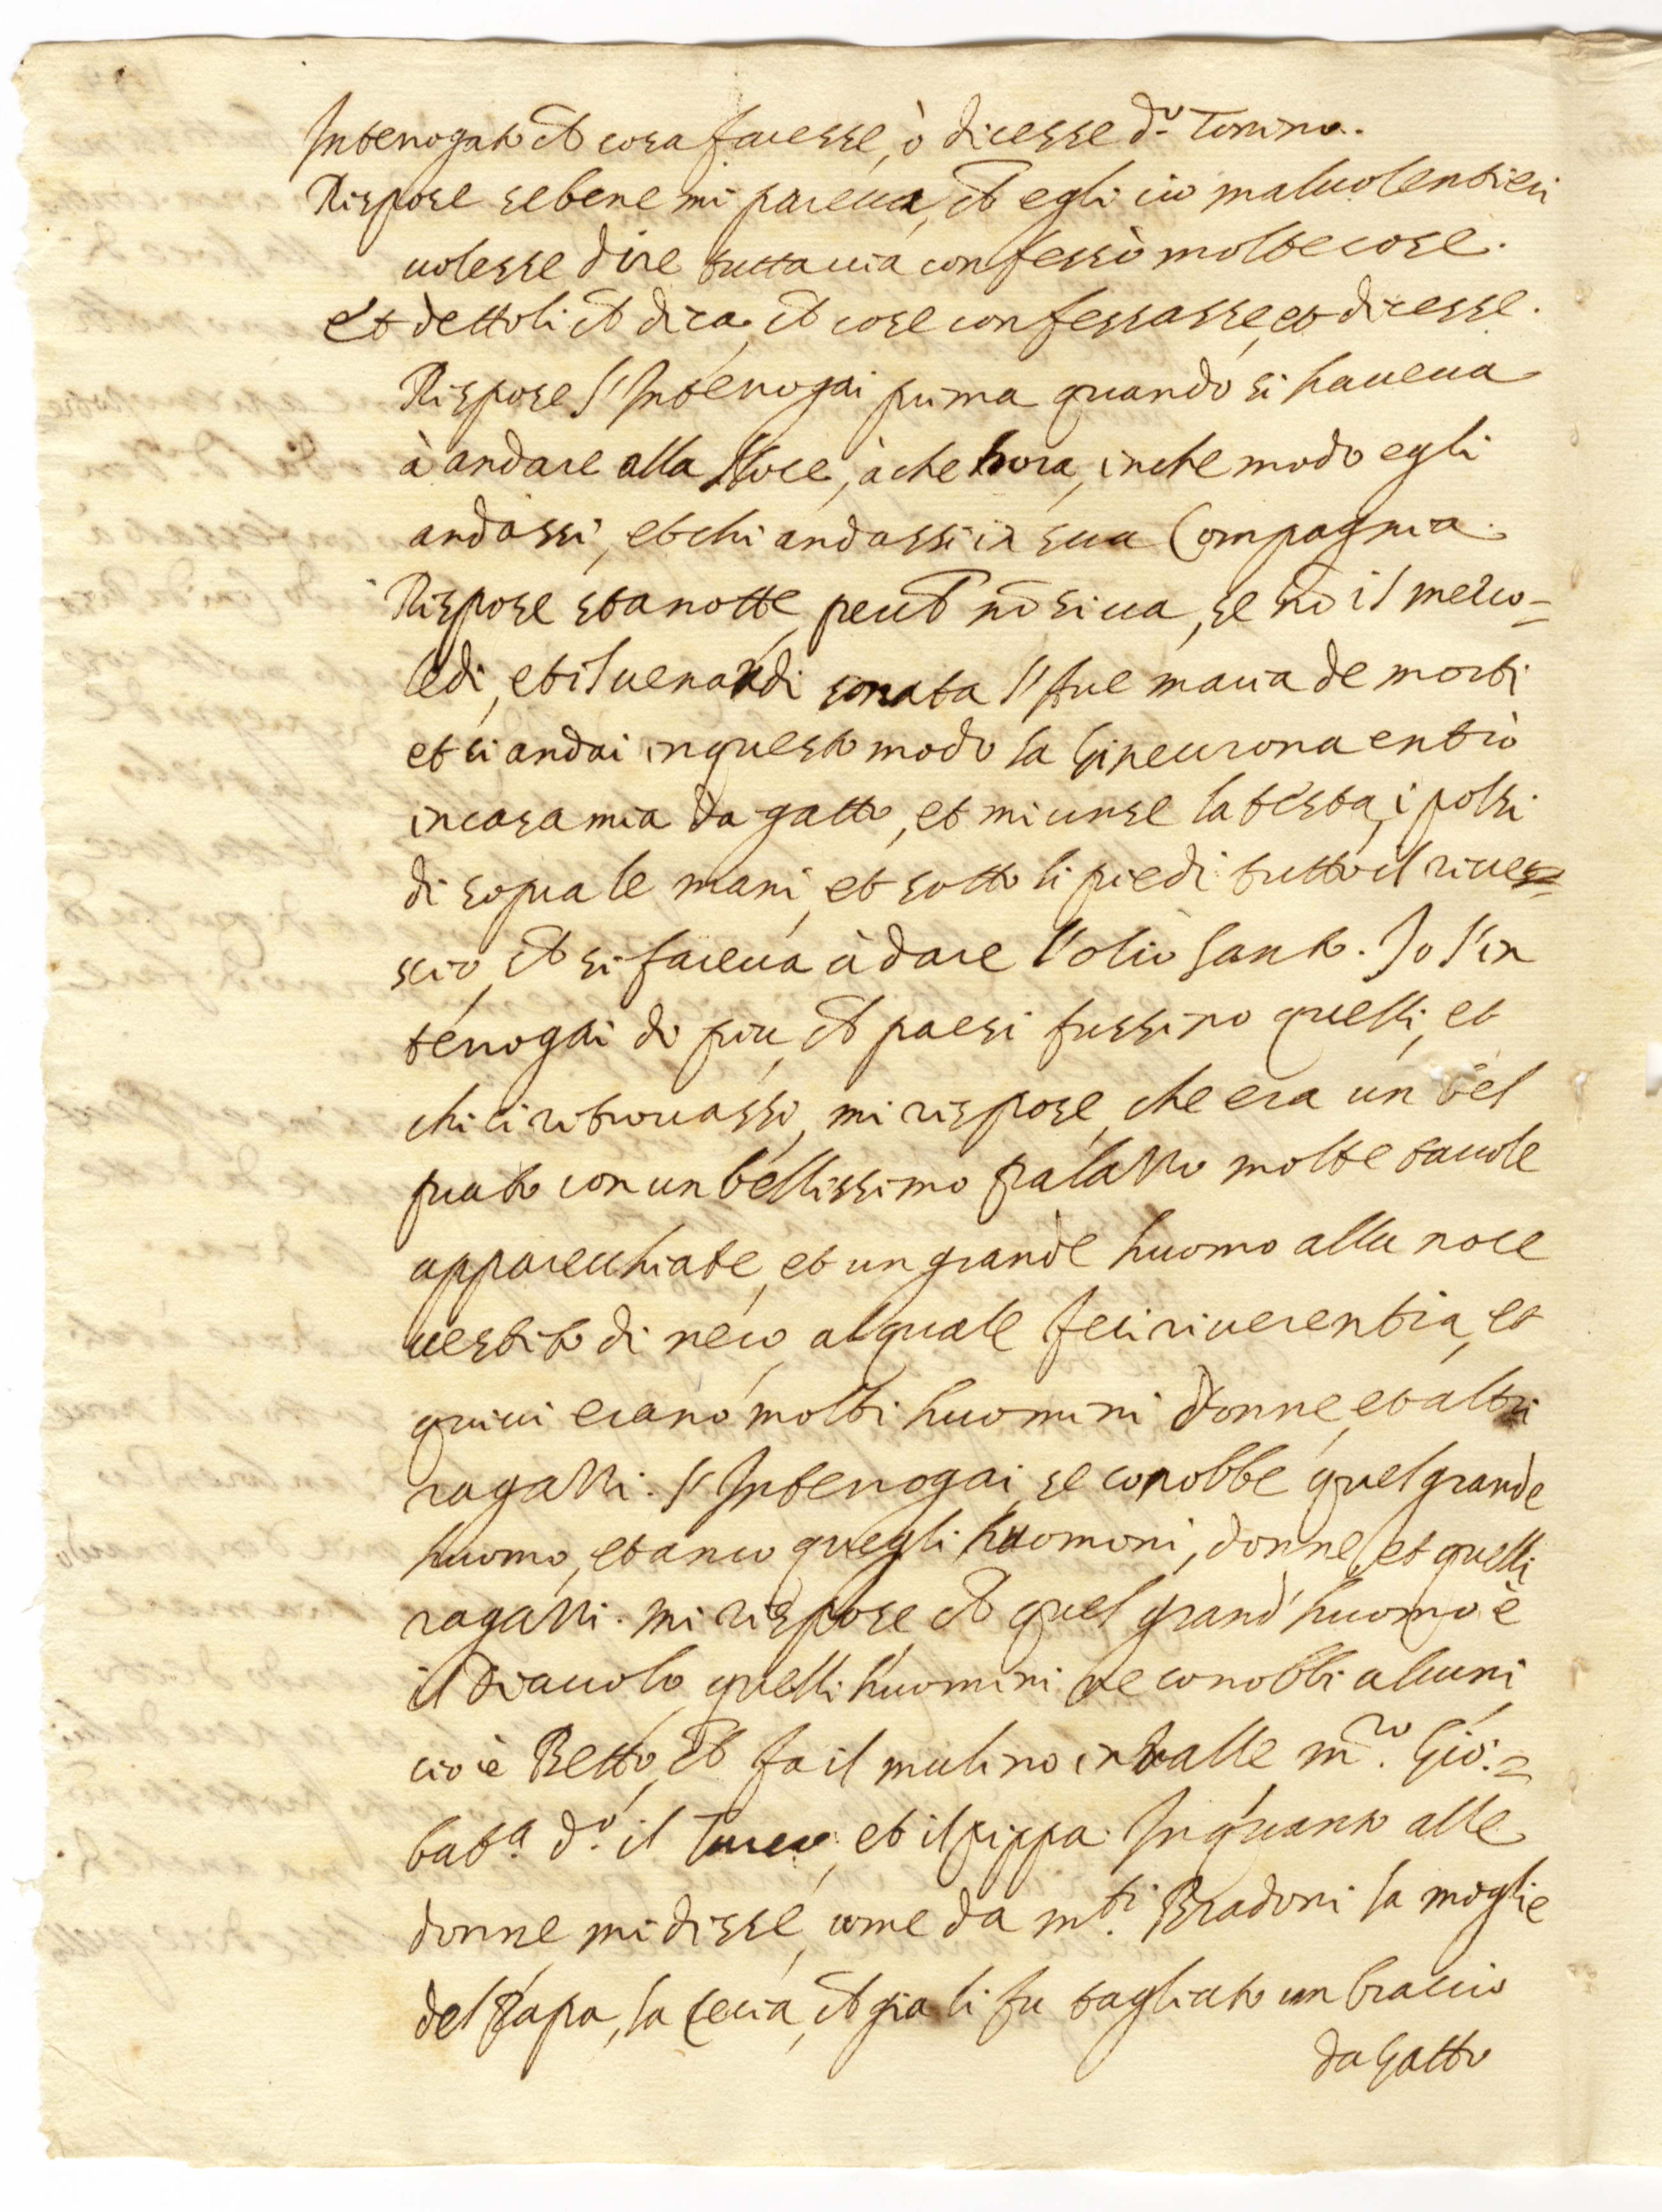 Interrogato ch cosa facesse, ò dicesse d.º Tonino.
Rispose sebene mi pareua, ch egli ciò maluolentieri
uolesse dire tutta uia confessò molte cose.
et dettoli ch dica, ch cose confessasse, et dicesse.
Rispose l'Interrogai prima quando si haueua
à andare alla Noce, à che hora, in che modo egli
andassi, et chi andassi in sua Compagnia.
Rispose sta notte, perch nō si ua, se nō il merco=
ledi, et il uenardi sonata l'Aue maria de morti
et ci andai in questo modo la Gineurona entrò
in casa mia da gatto, et mi unse la testa, i polsi
di sopra le mani, et sotto li piedi tutto il riuer=
scio, ch si faceua à dare l'olio Santo. Io l'in
terrogai di piu, ch paesi fussino quelli, et
chi ci ritrouassi, mi rispose, che era un bel
prato con un bellissimo palazzo molte tauole
apparecchiate, et un grande huomo alla noce
uestito di nero, al quale feci riuerentia, et
quiui erano molti huomini donne, et altri
ragazzi. l'Interrogai, se conobbe quel grande
huomo, et anco quegli huomoni, donne, et quelli
ragazzi. mi rispose ch quel grand'huomo è
il Diauolo, quelli huomini ne conobbi alcuni
cioè Betto, ch fa il mulino in Valle m.ro Gio:=
bat.a d.º il Turco, et il pippa. In quanto alle
donne mi disse, come da m.ti Bradoni la moglie
del Papa, la Cecia, ch gia li fu tagliato un braccio
da Gatto